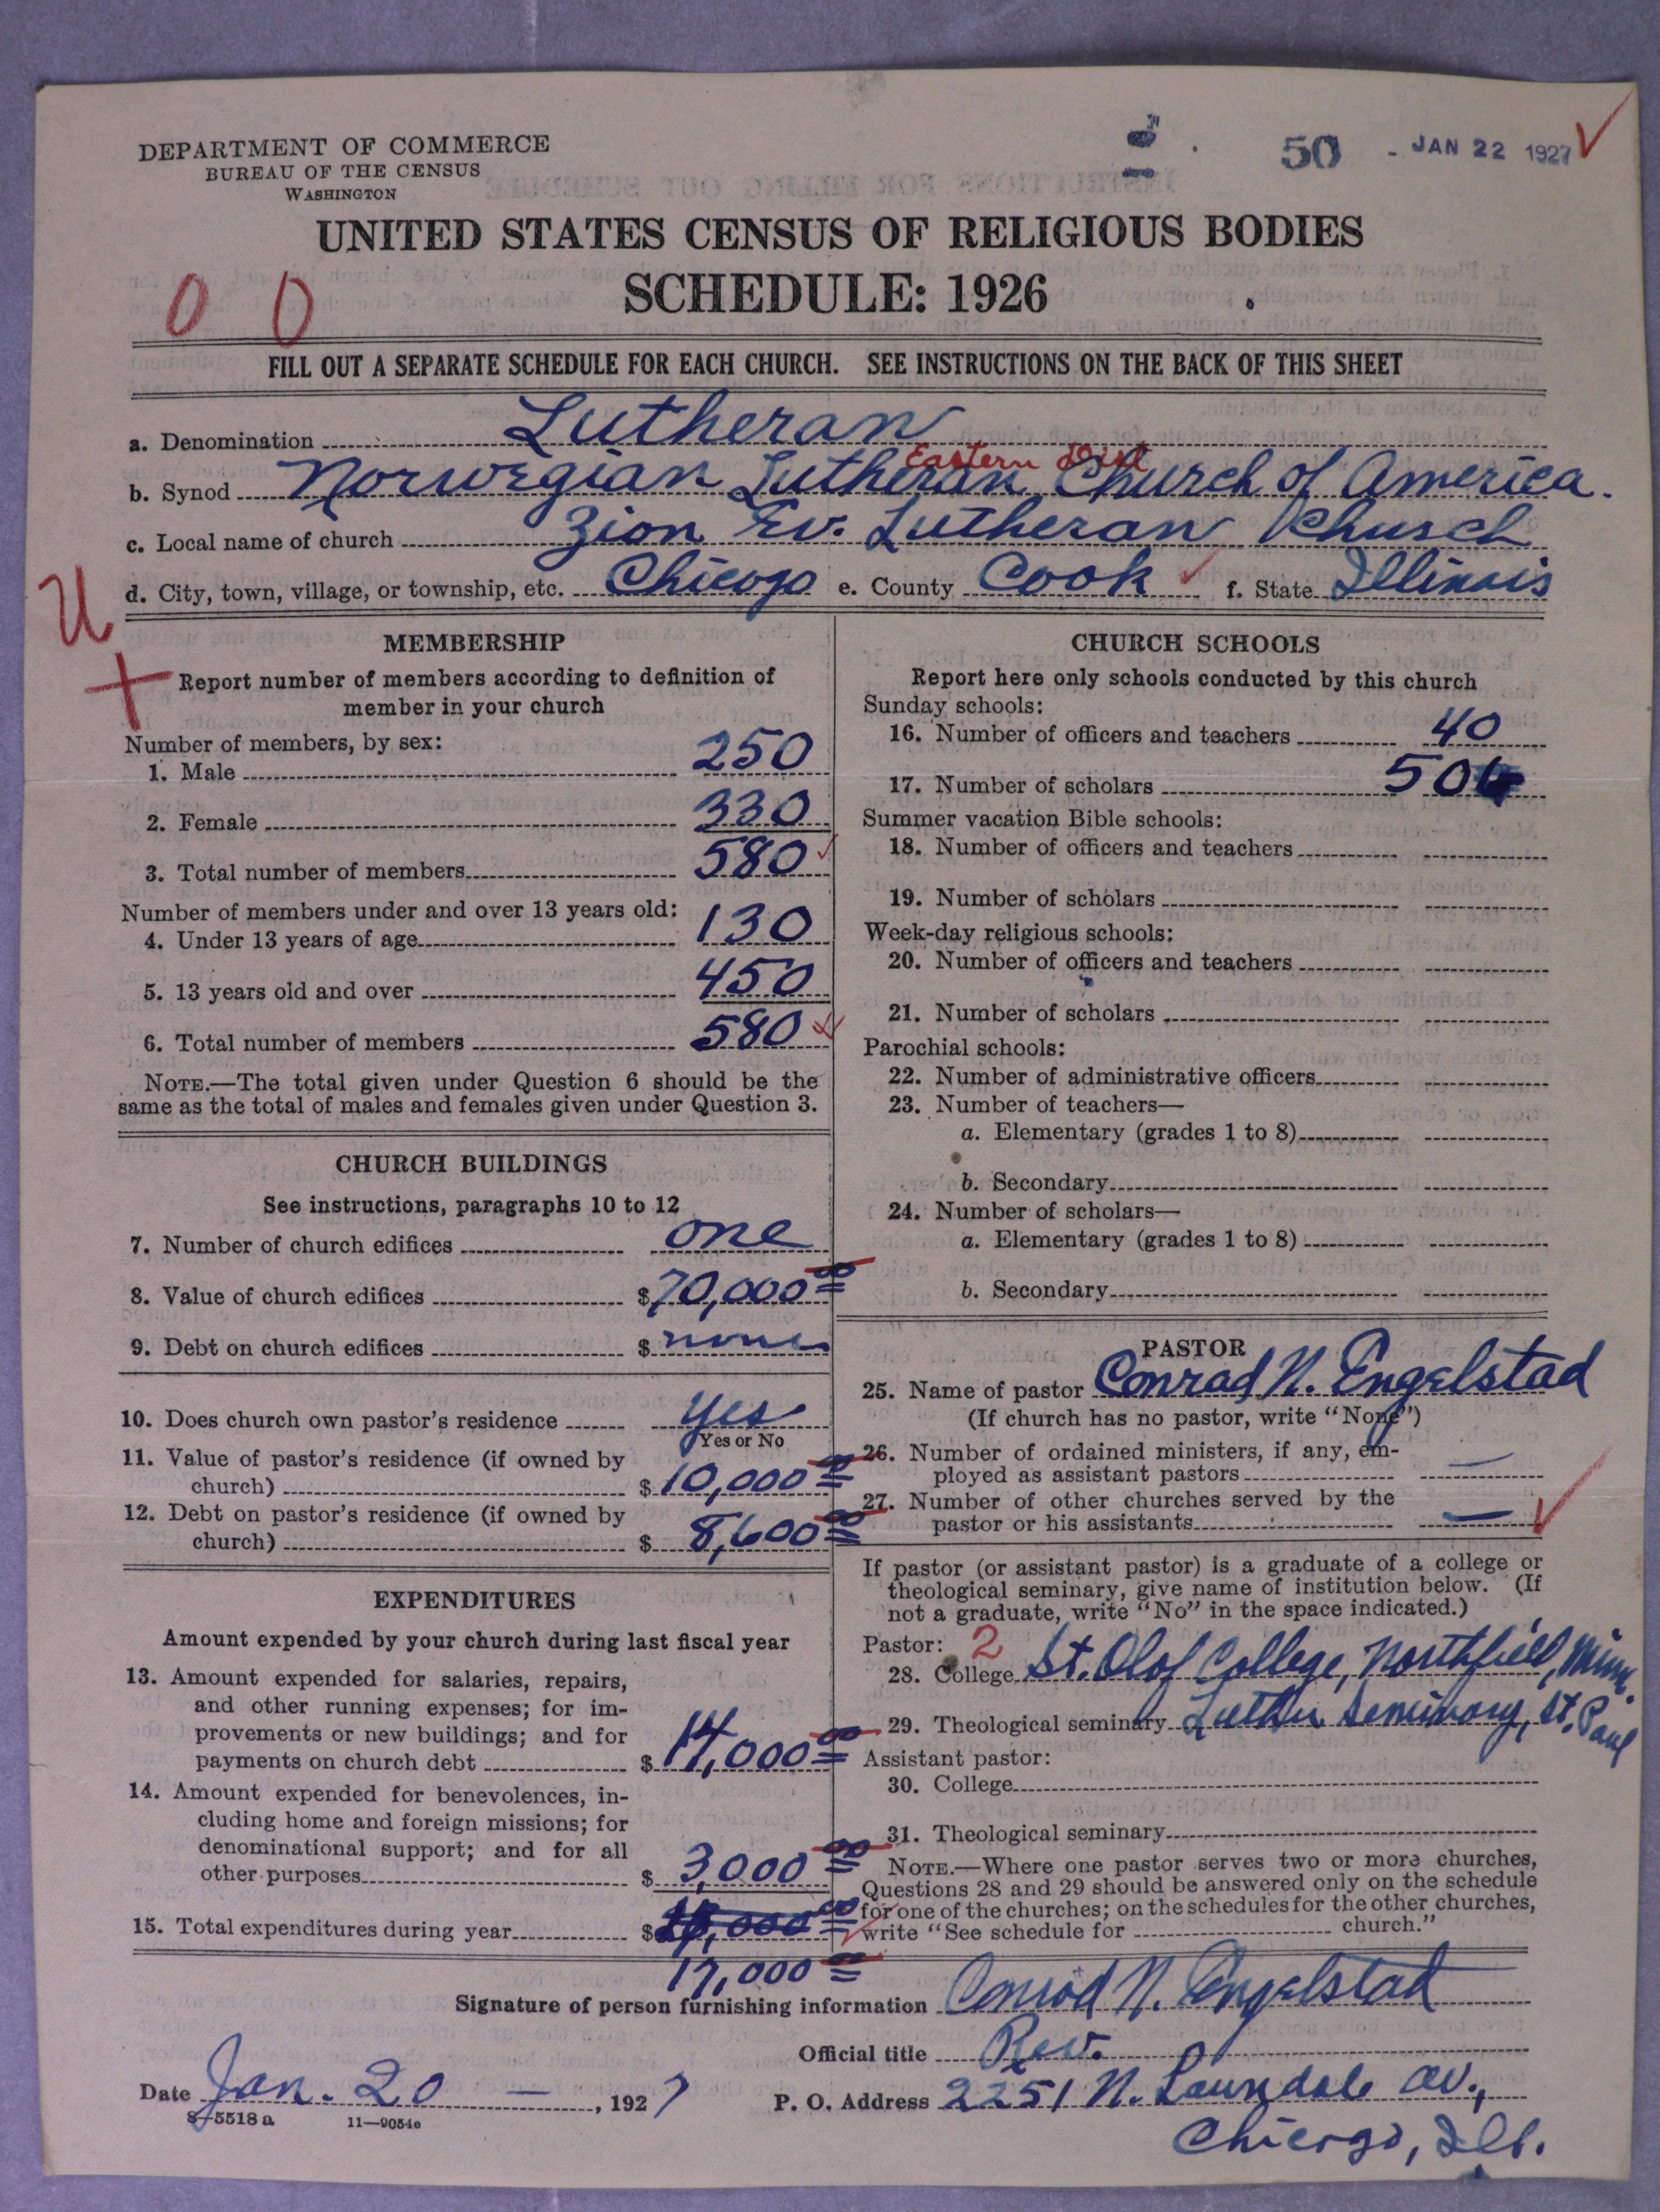 DEPARTMENT OF COMMERCE
BUREAU OF THE CENSUS
WASHINGTON
50 - JAN 22 1927
UNITED STATES CENSUS OF RELIGIOUS BODIES
SCHEDULE: 1926
0 0
FILL OUT A SEPARATE SCHEDULE FOR EACH CHURCH. SEE INSTRUCTIONS ON THE BACK OF THIS SHEET
a. Denomination Lutheran
Eastern Dist
b. Synod Norwegian Lutheran Church of America.
c. Local name of church Zion Ev. Lutheran Church
d. City, town, village, or township, etc. Chicago e. County Cook f. State Illinois
U
MEMBERSHIP
Report number of members according to definition of
member in your church
Number of members, by sex:
1. Male 250
2. Female 330
3. Total number of members 580
Number of members under and over 13 years old:
4. Under 13 years of age 130
5. 13 years old and over 450
6. Total number of members 580
NOTE.—The total given under Question 6 should be the
same as the total of males and females given under Question 3.
CHURCH BUILDINGS
See instructions, paragraphs 10 to 12
7. Number of church edifices one
8. Value of church edifices $70,000 00
9. Debt on church edifices $ none
10. Does church own pastor's residence yes
Yes or No
11. Value of pastor's residence (if owned by
church) $10,000 00
12. Debt on pastor's residence (if owned by
church) $ 8,600 00
EXPENDITURES
Amount expended by your church during last fiscal year
13. Amount expended for salaries, repairs,
and other running expenses; for im-
provements or new buildings; and for
payments on church debt $ 14,000 00
14. Amount expended for benevolences, in-
cluding home and foreign missions; for
denominational support; and for all
other purposes $ 3,000 00
15. Total expenditures during year $
17,000 00
CHURCH SCHOOLS
Report here only schools conducted by this church
Sunday schools:
16. Number of officers and teachers 40
17. Number of scholars
Summer vacation Bible schools:
18. Number of officers and teachers
19. Number of scholars
Week-day religious schools:
20. Number of officers and teachers
21. Number of scholars
Parochial schools:
22. Number of administrative officers
23. Number of teachers—
a. Elementary (grades 1 to 8)
b. Secondary
24. Number of scholars—
a. Elementary (grades 1 to 8)
b. Secondary
PASTOR
25. Name of pastor Conrad N. Engelstad
(If church has no pastor, write "None")
26. Number of ordained ministers, if any, em-
ployed as assistant pastors —
27. Number of other churches served by the
pastor or his assistants —
If pastor (or assistant pastor) is a graduate of a college or
theological seminary, give name of institution below. (If
not a graduate, write "No" in the space indicated.)
Pastor: 2
28. College St. Olof College, Northfield, Minn.
29. Theological seminary Luther Seminary, St. Paul
Assistant pastor:
30. College
31. Theological seminary
NOTE.—Where one pastor serves two or more churches,
Questions 28 and 29 should be answered only on the schedule
for one of the churches; on the schedules for the other churches,
write "See schedule for church."
Signature of person furnishing information Conrad N. Engelstad
Official title Rev.
Date Jan. 20 —, 1927
P. O. Address 2251 N. Lawndale av.,
8-5518 a 11—9054c
Chicago, Ill.